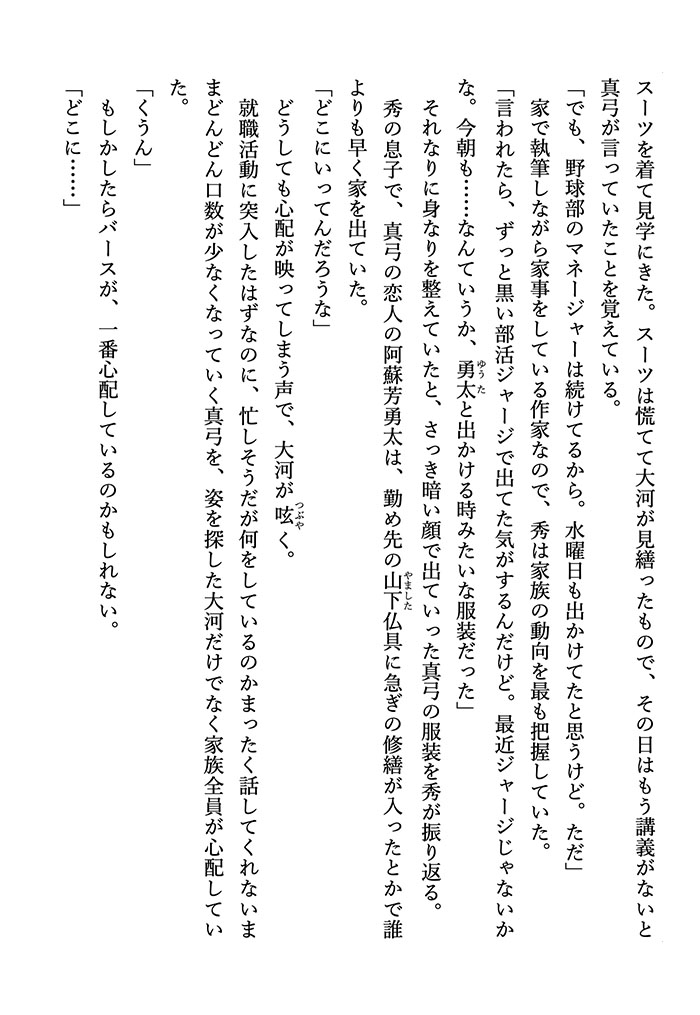 スーツを着て見学にきた。スーツは慌てて大河が見繕ったもので、その日はもう講義がないと
真弓が言っていたことを覚えている。
「でも、野球部のマネージャーは続けてるから。水曜日も出かけてたと思うけど。ただ」
家で執筆しながら家事をしている作家なので、秀は家族の動向を最も把握していた。
「言われたら、ずっと黒い部活ジャージで出てた気がするんだけど。最近ジャージじゃないか
な。今朝も……なんていうか、勇太と出かける時みたいな服装だった」
それなりに身なりを整えていたと、さっき暗い顔で出ていった真弓の服装を秀が振り返る。
秀の息子で、真弓の恋人の阿蘇芳勇太は、勤め先の山下仏具に急ぎの修繕が入ったとかで誰
よりも早く家を出ていた。
「どこにいってんだろうな」
どうしても心配が映ってしまう声で、大河が呟く。
就職活動に突入したはずなのに、忙しそうだが何をしているのかまったく話してくれないま
まどんどん口数が少なくなっていく真弓を、姿を探した大河だけでなく家族全員が心配してい
た。
「くうん」
もしかしたらバースが、一番心配しているのかもしれない。
「どこに……」